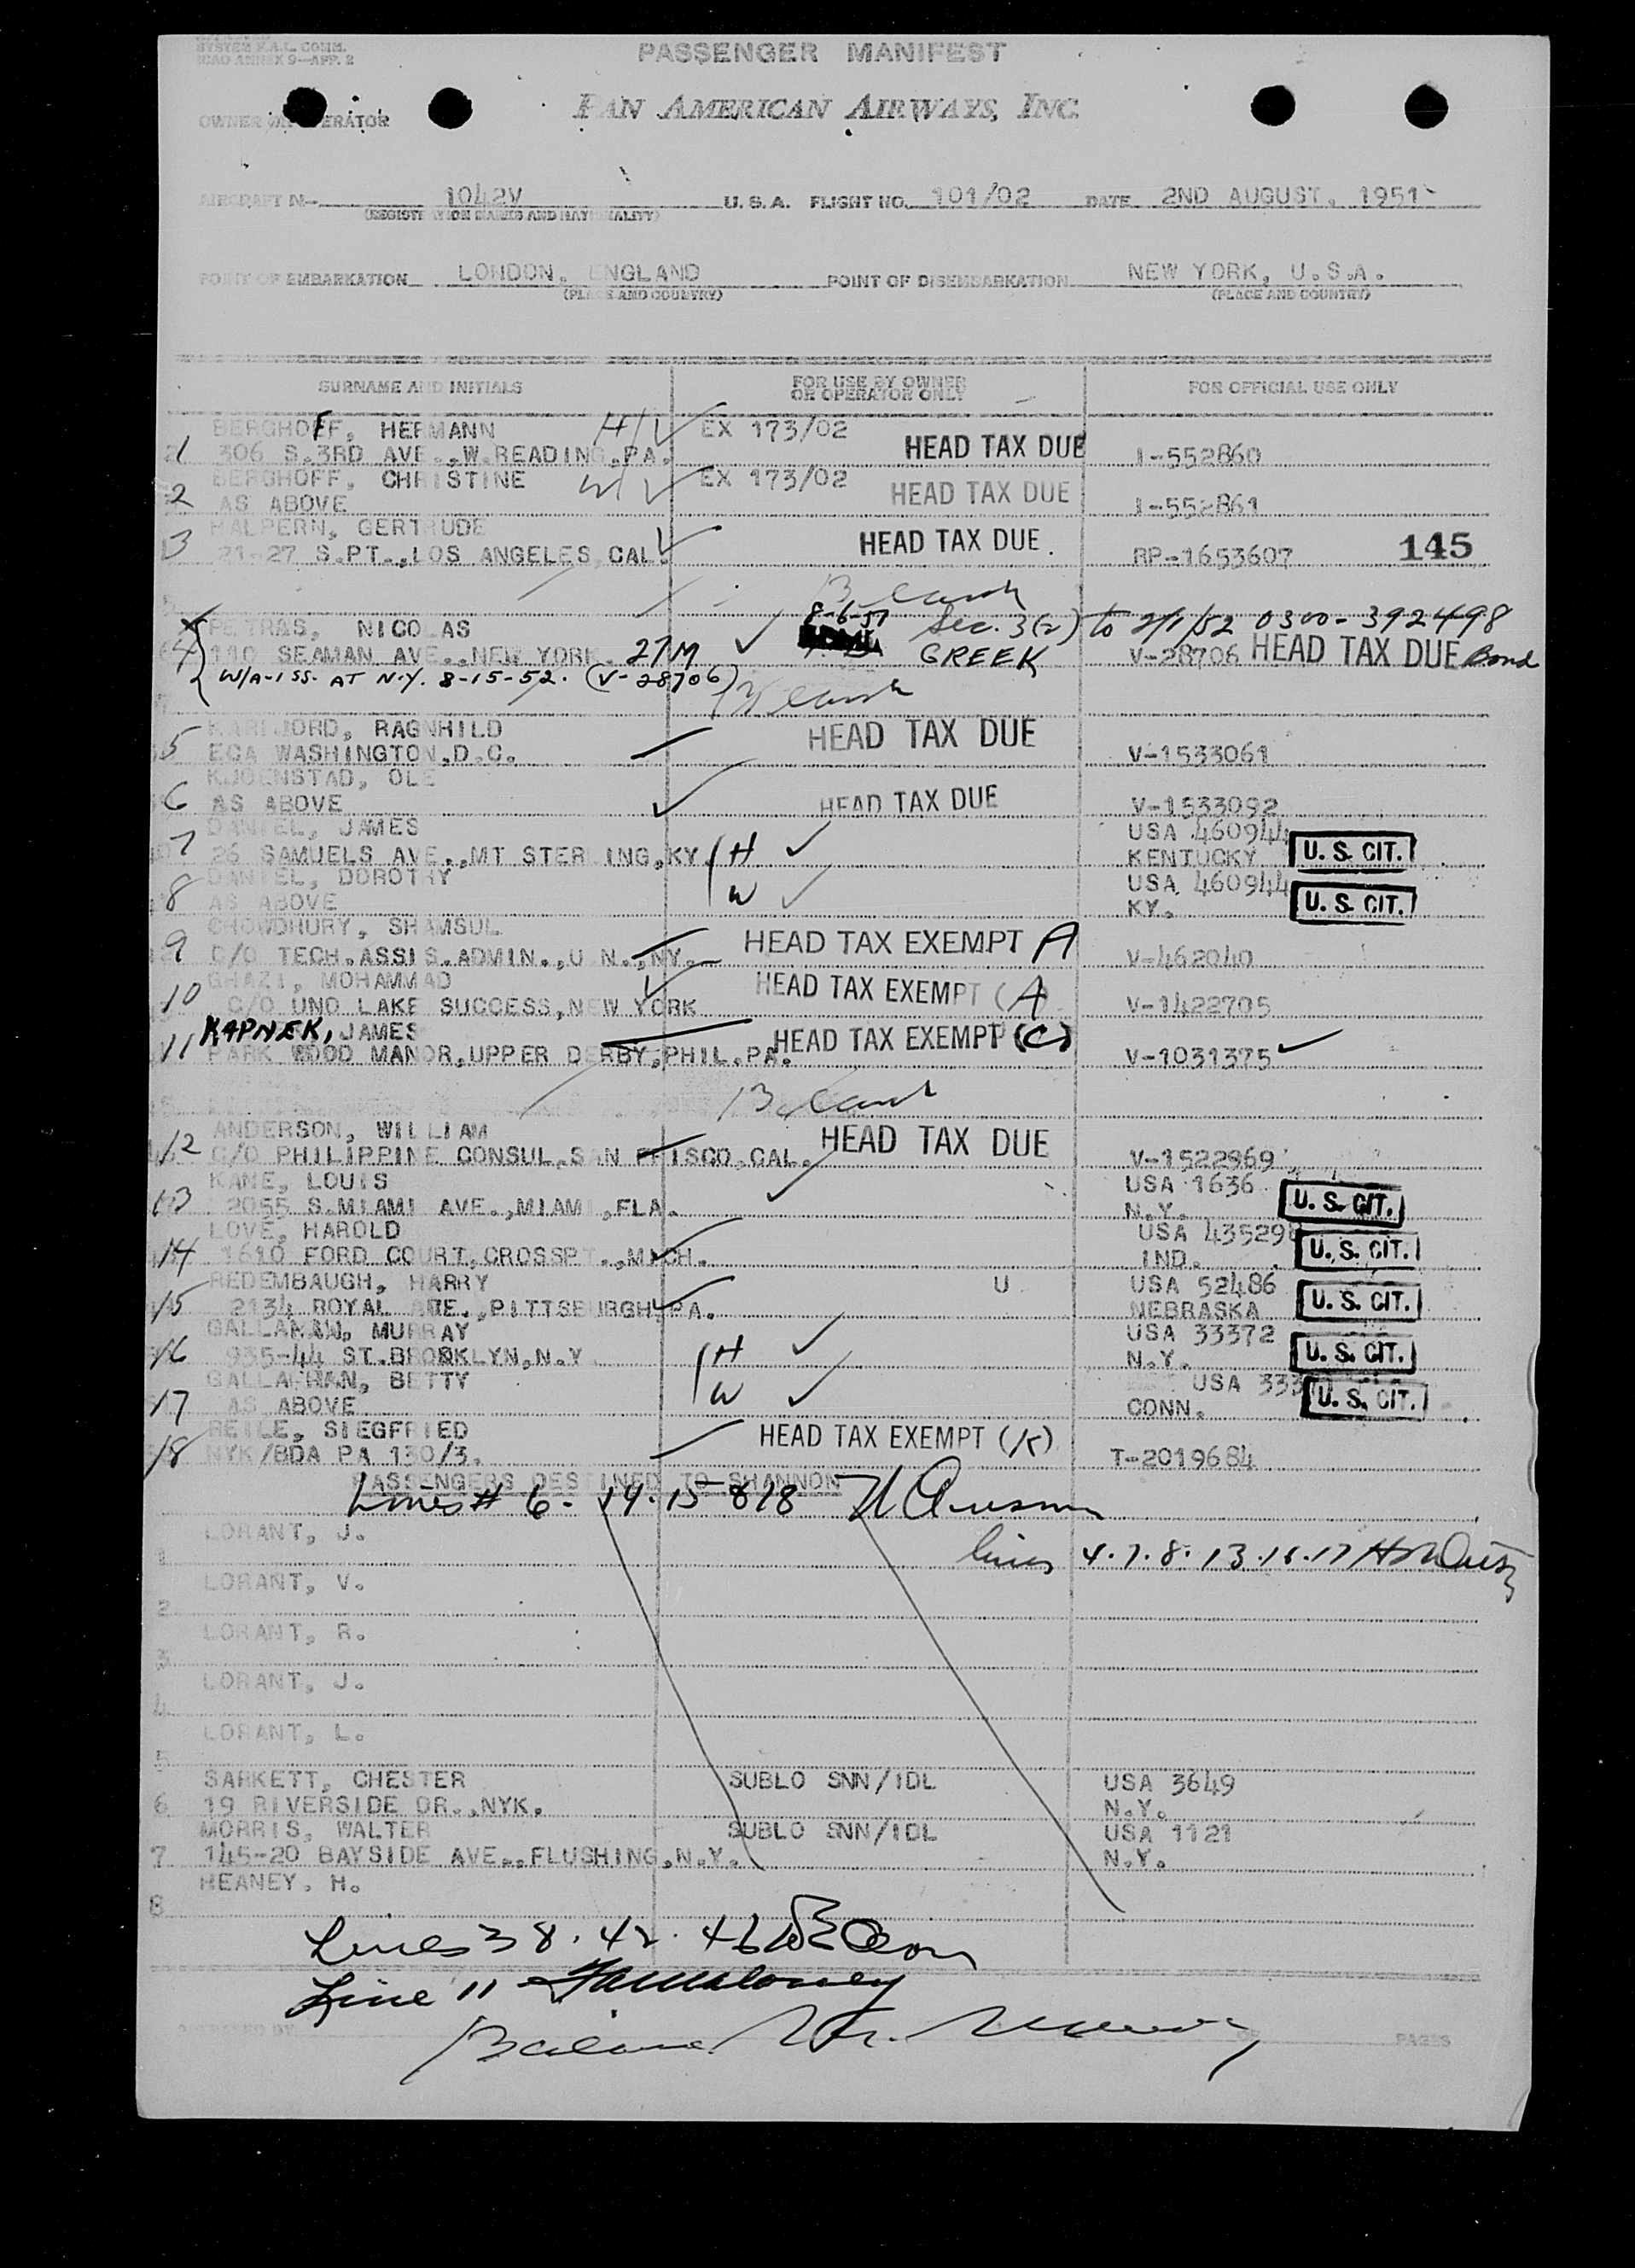 SYSTEM F.A.L. COMM.
ICAO ANNEX 9—APP. 2
PASSENGER MANIFEST
PAN AMERICAN AIRWAYS, INC.
OWNER OR OPERATOR
AIRCRAFT N— 1042V U. S. A. FLIGHT NO. 101/02 DATE 2ND AUGUST, 1951
(REGISTRATION MARKS AND NATIONALITY)
POINT OF EMBARKATION LONDON, ENGLAND POINT OF DISEMBARKATION NEW YORK, U.S.A.
(PLACE AND COUNTRY) (PLACE AND COUNTRY)
SURNAME AND INITIALS FOR USE BY OWNER OR OPERATOR ONLY FOR OFFICIAL USE ONLY
BERGHOFF, HERMANN H EX 173/02
1 306 S.3RD AVE.,W.READING,PA. HEAD TAX DUE I-552860
BERGHOFF, CHRISTINE W EX 173/02
2 AS ABOVE HEAD TAX DUE I-552861
HALPERN, GERTRUDE
3 21-27 S.PT.,LOS ANGELES,CAL. HEAD TAX DUE RP-1653607 145
PETRAS, NICOLAS 8-6-51 Sec. 3(2) to 2/1/52 0300-392498
4 110 SEAMAN AVE.,NEW YORK. 27M GREEK V-28706 HEAD TAX DUE Bond
W/A-1 SS. AT N.Y. 8-15-52. (V-28706)
KARIJORD, RAGNHILD
5 ECA WASHINGTON,D.C. HEAD TAX DUE V-1533061
KJOENSTAD, OLE
6 AS ABOVE HEAD TAX DUE V-1533092
DANIEL, JAMES USA 460944
7 26 SAMUELS AVE.,MT STERLING,KY. H KENTUCKY U. S. CIT.
DANIEL, DOROTHY USA 460944
8 AS ABOVE W KY. U. S. CIT.
CHOWDHURY, SHAMSUL
9 C/O TECH.ASSIS.ADMIN.,U.N.,NY. HEAD TAX EXEMPT A V-462040
GHAZI, MOHAMMAD
10 C/O UNO LAKE SUCCESS,NEW YORK HEAD TAX EXEMPT (A) V-1422705
KAPNEK, JAMES
11 PARK WOOD MANOR,UPPER DERBY,PHIL.PA. HEAD TAX EXEMPT (C) V-1031375
ANDERSON, WILLIAM
12 C/O PHILIPPINE CONSUL,SAN FRISCO,CAL. HEAD TAX DUE V-1522969
KANE, LOUIS USA 1636
13 2055 S.MIAMI AVE.,MIAMI,FLA. N.Y. U. S. CIT.
LOVE, HAROLD USA 43529
14 1610 FORD COURT,GROSSPT.,MICH. IND. U. S. CIT.
REDEMBAUGH, HARRY U USA 52486
15 2134 ROYAL AVE.,PITTSBURGH,PA. NEBRASKA U. S. CIT.
GALLAHAN, MURRAY USA 33372
16 935-44 ST.BROOKLYN,N.Y. H N.Y. U. S. CIT.
GALLAHAN, BETTY USA 333
17 AS ABOVE W CONN. U. S. CIT.
REILE, SIEGFRIED
18 NYK/BDA PA 130/3. HEAD TAX EXEMPT (K) T-2019684
PASSENGERS DESTINED TO SHANNON
Lines # 6. 14. 15 & 18
LORANT, J.
1 lines 4. 7. 8. 13. 16. 17
LORANT, V.
2
LORANT, R.
3
LORANT, J.
4
LORANT, L.
5
SARKETT, CHESTER SUBLO SNN/IDL USA 3649
6 19 RIVERSIDE DR.,NYK. N.Y.
MORRIS, WALTER SUBLO SNN/IDL USA 1121
7 145-20 BAYSIDE AVE.,FLUSHING,N.Y. N.Y.
HEANEY. H.
8
Lines 38. 42. 46
Line 11
PAGES